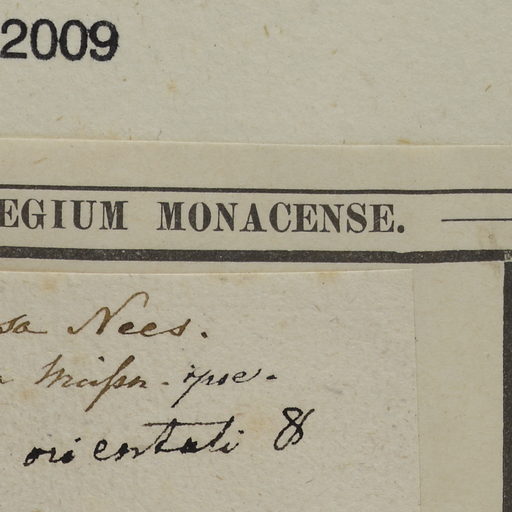 2009
EGIUM MONACENSE.
sa Nees.
Meissn. ipse.
orientali &